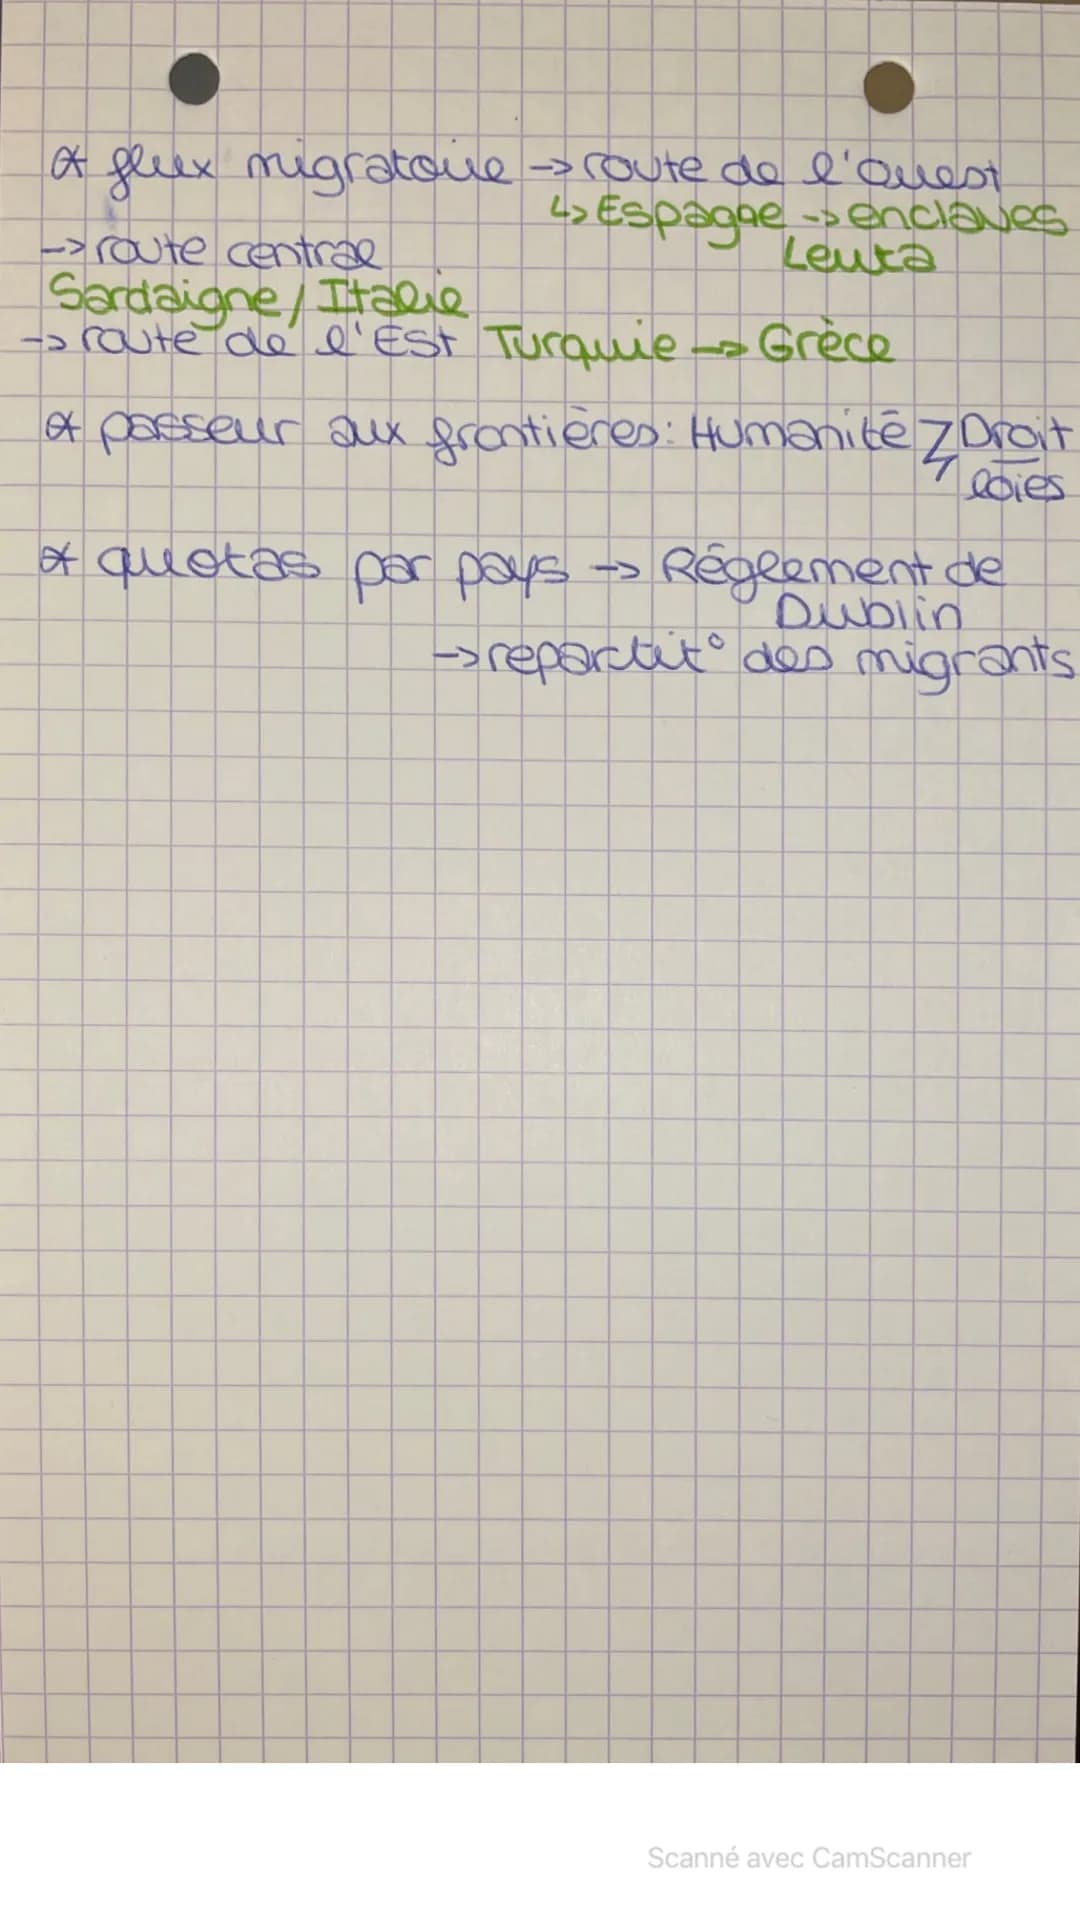 * flux migratoire -> route de l'ouest
↳ Espagne -> enclaves
-> route central
Leuta
Sardaigne / Italie
-> route de l'Est Turquie -> Grèce
* passeur aux frontières : Humanité ↯ Droit
loies
* quotas par pays -> Réglement de
Dublin
-> repartit° des migrants
Scanné avec CamScanner